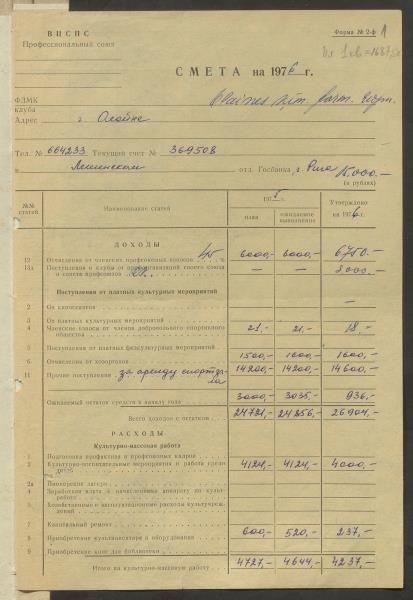 ВЦСПС
Профессиональный союз
Форма № 2-ф
1
СМЕТА на 1976 г.
ФЗМК
клуба
Адрес г. Олайне
Тел. № 664233 Текущий счет № 369508
в Ленинском отд. Госбанка, г. Рига 15.000.—
(в рублях)
№№ статей Наименование статей 1975 Утверждено на 1976 г.
план ожидаемое выполнение
ДОХОДЫ
12 Отчисления от членских профсоюзных взносов 45 % 6000,- 6000,- 6750.—
13а Поступления в клубы от своего союза и совета профсоюзов — — 3000.—
Поступления от платных культурных мероприятий
2 От киносеансов —
3 От платных культурных мероприятий
4 Членские взносы от членов добровольного спортивного общества 21,- 21,- 18,-
5 Поступления от платных физкультурных мероприятий
6 Отчисления от хозорганов 1500,- 1600,- 1600,-
11 Прочие поступления за аренду спортзала 14200,- 14200,- 14600,-
Ожидаемый остаток средств к началу года 3000,- 3035,- 936,-
Всего доходов с остатком 24721,- 24856,- 26904,-
РАСХОДЫ
Культурно-массовая работа
1 Подготовка профактива и профсоюзных кадров
2 Культурно-воспитательные мероприятия и работа среди детей 4124,- 4124,- 4000,-
2а Пионерские лагери
4 Заработная плата с начислениями аппарату по культработе
5 Хозяйственные и эксплуатационные расходы культучреждений
7 Капитальный ремонт
8 Приобретение культинвентаря и оборудования 600,- 520,- 237,-
9 Приобретение книг для библиотеки
Итого на культурно-массовую работу 4727,- 4644,- 4237,-